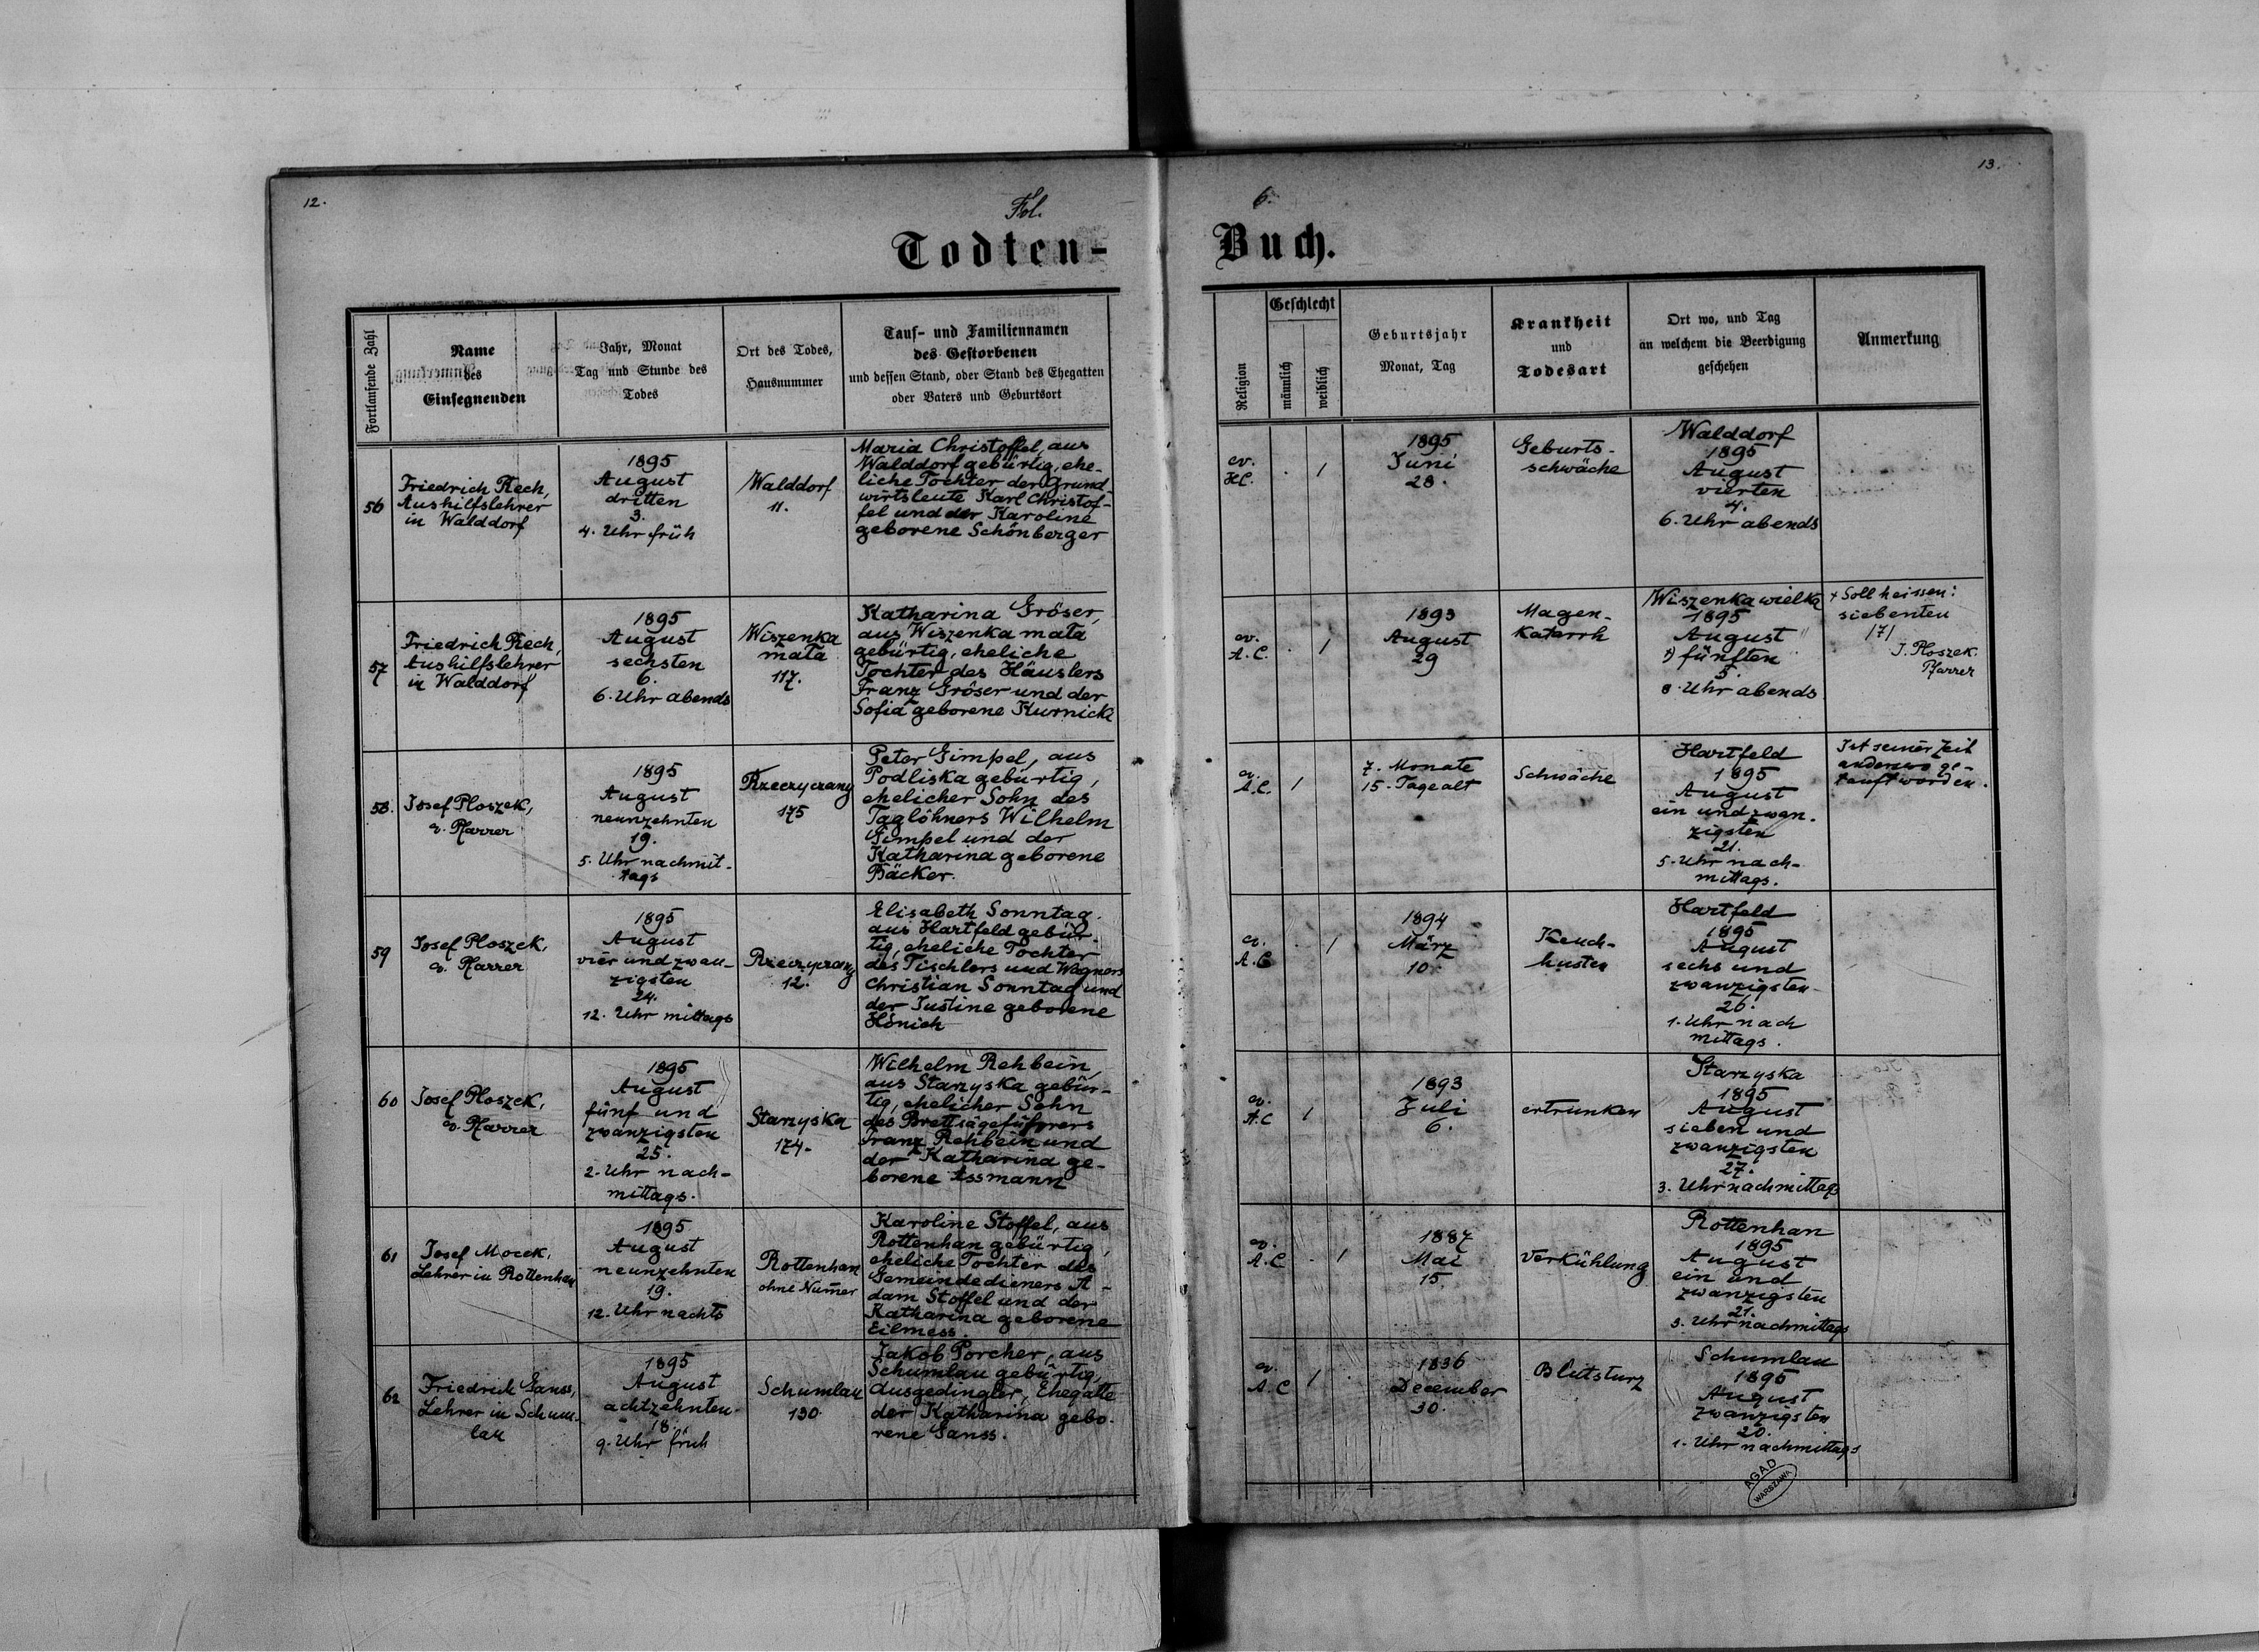 12.
Fol.
6.
13.
Todten-
Buch.
Fortlaufende Zahl
Name
des
Einsegnenden
Jahr, Monat
Tag und Stunde des
Todes
Ort des Todes,
Hausnummer
Tauf- und Familiennamen
des Gestorbenen
und dessen Stand, oder Stand des Ehegatten
oder Vaters und Geburtsort
Religion
Geschlecht
männlich
weiblich
Geburtsjahr
Monat, Tag
Krankheit
und
Todesart
Ort wo, und Tag
an welchem die Beerdigung
geschehen
Anmerkung
56
Friedrich Rech,
Aushilfslehrer
in Walddorf
1895
August
dritten
3.
4. Uhr früh
Walddorf
11.
Maria Christoffel, aus
Walddorf gebürtig, ehe-
liche Tochter der Grund-
wirtsleute Karl Christof-
fel und der Karoline
geborene Schönberger
ev.
H.C.
. /
1895
Juni
28.
Geburts-
schwäche
Walddorf
1895
August
vierten
4.
6. Uhr abends
57
Friedrich Rech,
Aushilfslehrer
in Walddorf
1895
August
sechsten
6.
6. Uhr abends
Wiszenka
mała
117.
Katharina Gröser,
aus Wiszenka mała
gebürtig, eheliche
Tochter des Häuslers
Franz Gröser und der
Sofia geborene Kurnicki
ev.
A.C.
. /
1893
August
29
Magen-
Katarrh
Wiszenka wielka
1895
August
fünften
5.
8. Uhr abends
+ Soll heissen:
siebenten
/7/
J. Ploszek.
Pfarrer
58.
Josef Ploszek,
ev. Pfarrer
1895
August
neunzehnten
19.
5. Uhr nachmit-
tags
Rzeczyczany
175
Peter Gimpel, aus
Podliska gebürtig,
ehelicher Sohn des
Taglöhners Wilhelm
Gimpel und der
Katharina geborene
Bäcker.
ev.
A.C.
/
7. Monate
15. Tage alt
Schwäche
Hartfeld
1895
August
ein und zwan-
zigsten
21.
5. Uhr nach-
mittags.
Ist seiner Zeit
anderswo ge-
tauft worden.
59
Josef Ploszek,
ev. Pfarrer
1895
August
vier und zwan-
zigsten
24.
12. Uhr mittags
Rzeczyczany
12.
Elisabeth Sonntag.
aus Hartfeld gebür-
tig, eheliche Tochter
des Tischlers und Wagners
Christian Sonntag und
der Justine geborene
Hönich
ev.
A.C
. /
1894
März
10.
Keuch-
husten
Hartfeld
1895
August
sechs und
zwanzigsten
26.
1. Uhr nach
mittags.
60
Josef Ploszek,
ev. Pfarrer
1895
August
fünf und
zwanzigsten
25.
2. Uhr nach-
mittags.
Starzyska
174.
Wilhelm Rehbein,
aus Starzyska gebür-
tig, ehelicher Sohn
des Brettsägeführers
Franz Rehbein und
der Katharina ge-
borene Assmann
ev.
A.C
/
1893
Juli
6.
ertrunken
Starzyska
1895
August
sieben und
zwanzigsten
27.
3. Uhr nachmittags
61
Josef Mocek,
Lehrer in Rottenhan
1895
August
neunzehnten
19.
12. Uhr nachts
Rottenhan
ohne Nummer
Karoline Stoffel, aus
Rottenhan gebürtig,
eheliche Tochter des
Gemeindedieners A-
dam Stoffel und der
Katharina geborene
Eilmess.
ev.
A.C
. /
1887
Mai
15.
Verkühlung
Rottenhan
1895
August
ein und
zwanzigsten
21.
3. Uhr nachmittags
62
Friedrich Ganss,
Lehrer in Schum-
lau
1895
August
achtzehnten
18.
9. Uhr früh
Schumlau
130.
Jakob Porcher, aus
Schumlau gebürtig,
Ausgedingler, Ehegatte
der Katharina gebo-
rene Ganss.
ev.
A.C
/ .
1836
December
30.
Blutsturz
Schumlau
1895
August
zwanzigsten
20.
1. Uhr nachmittags
AGAD
WARSZAWA